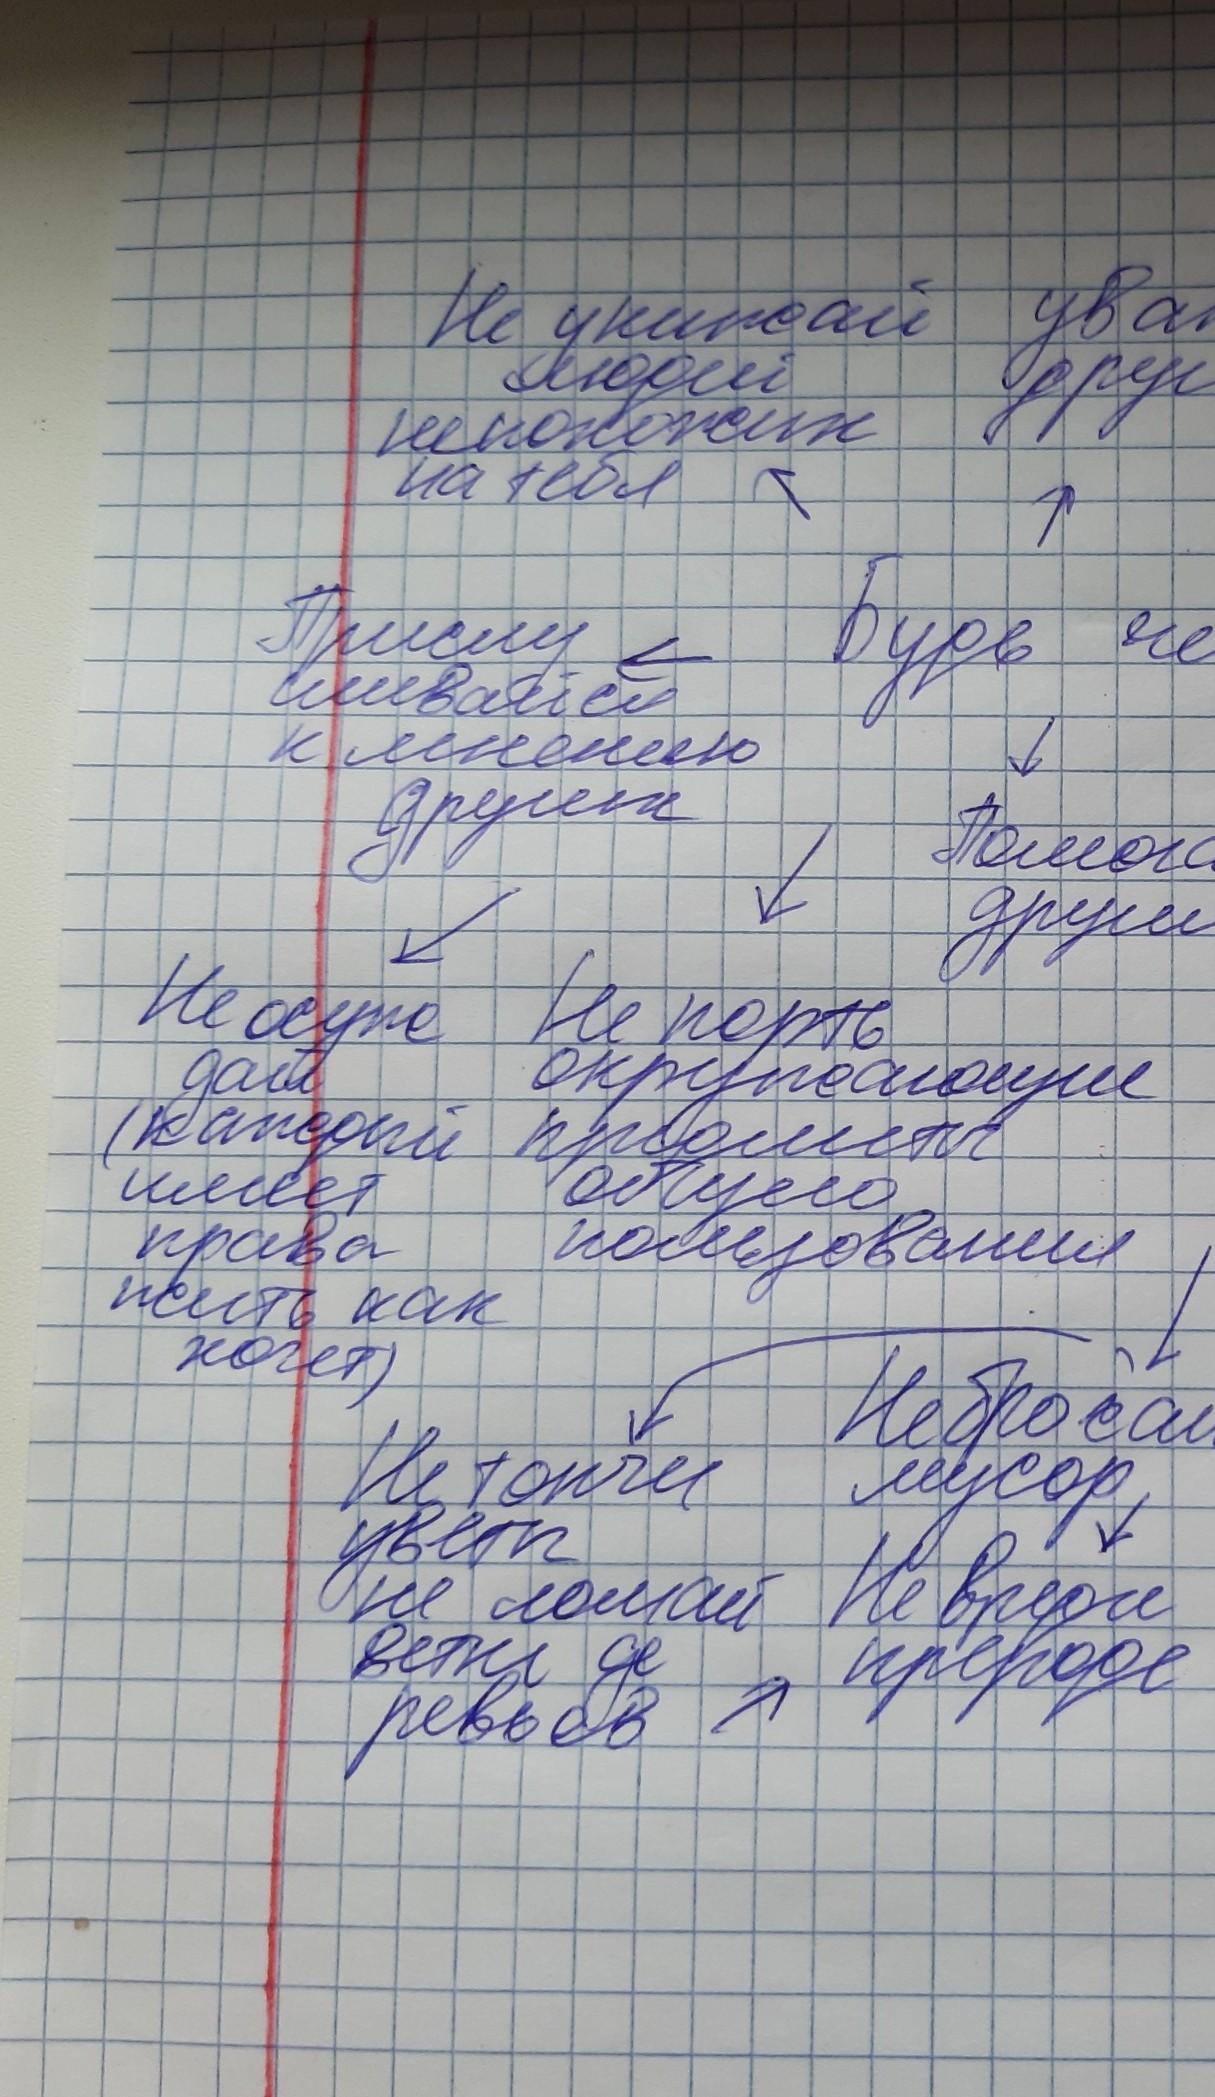 Не унижай
людей
непохожих
на тебя
ува
друг
Будь че
Прислу
шивайся
к мнению
других
Помога
други
Не осуж
дай
(каждый
имеет
права
жить как
хочет)
Не порть
окружающие
предметы
общего
пользования
Не бросай
мусор
Не топчи
цветы
не ломай
ветки де
ревьев
Не вреди
природе